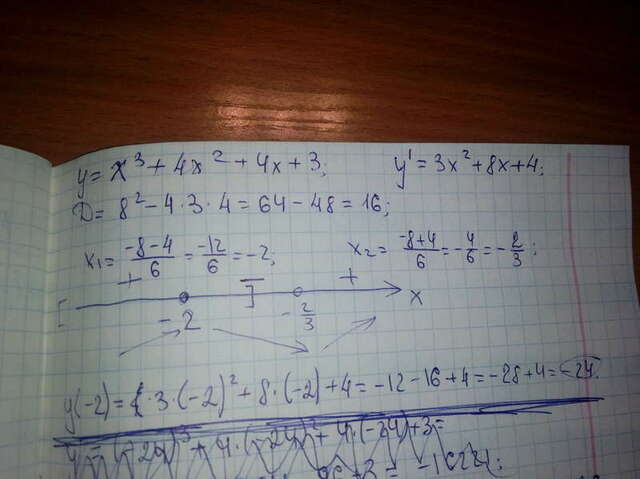 y = x³ + 4x² + 4x + 3; y' = 3x² + 8x + 4;
D = 8² - 4·3·4 = 64 - 48 = 16;
x₁ = (-8-4)/6 = -12/6 = -2; x₂ = (-8+4)/6 = -4/6 = -2/3;
+ - +
[ ] x
-2 -2/3
y(-2) = 3·(-2)² + 8·(-2) + 4 = -12 - 16 + 4 = -28 + 4 = -24.